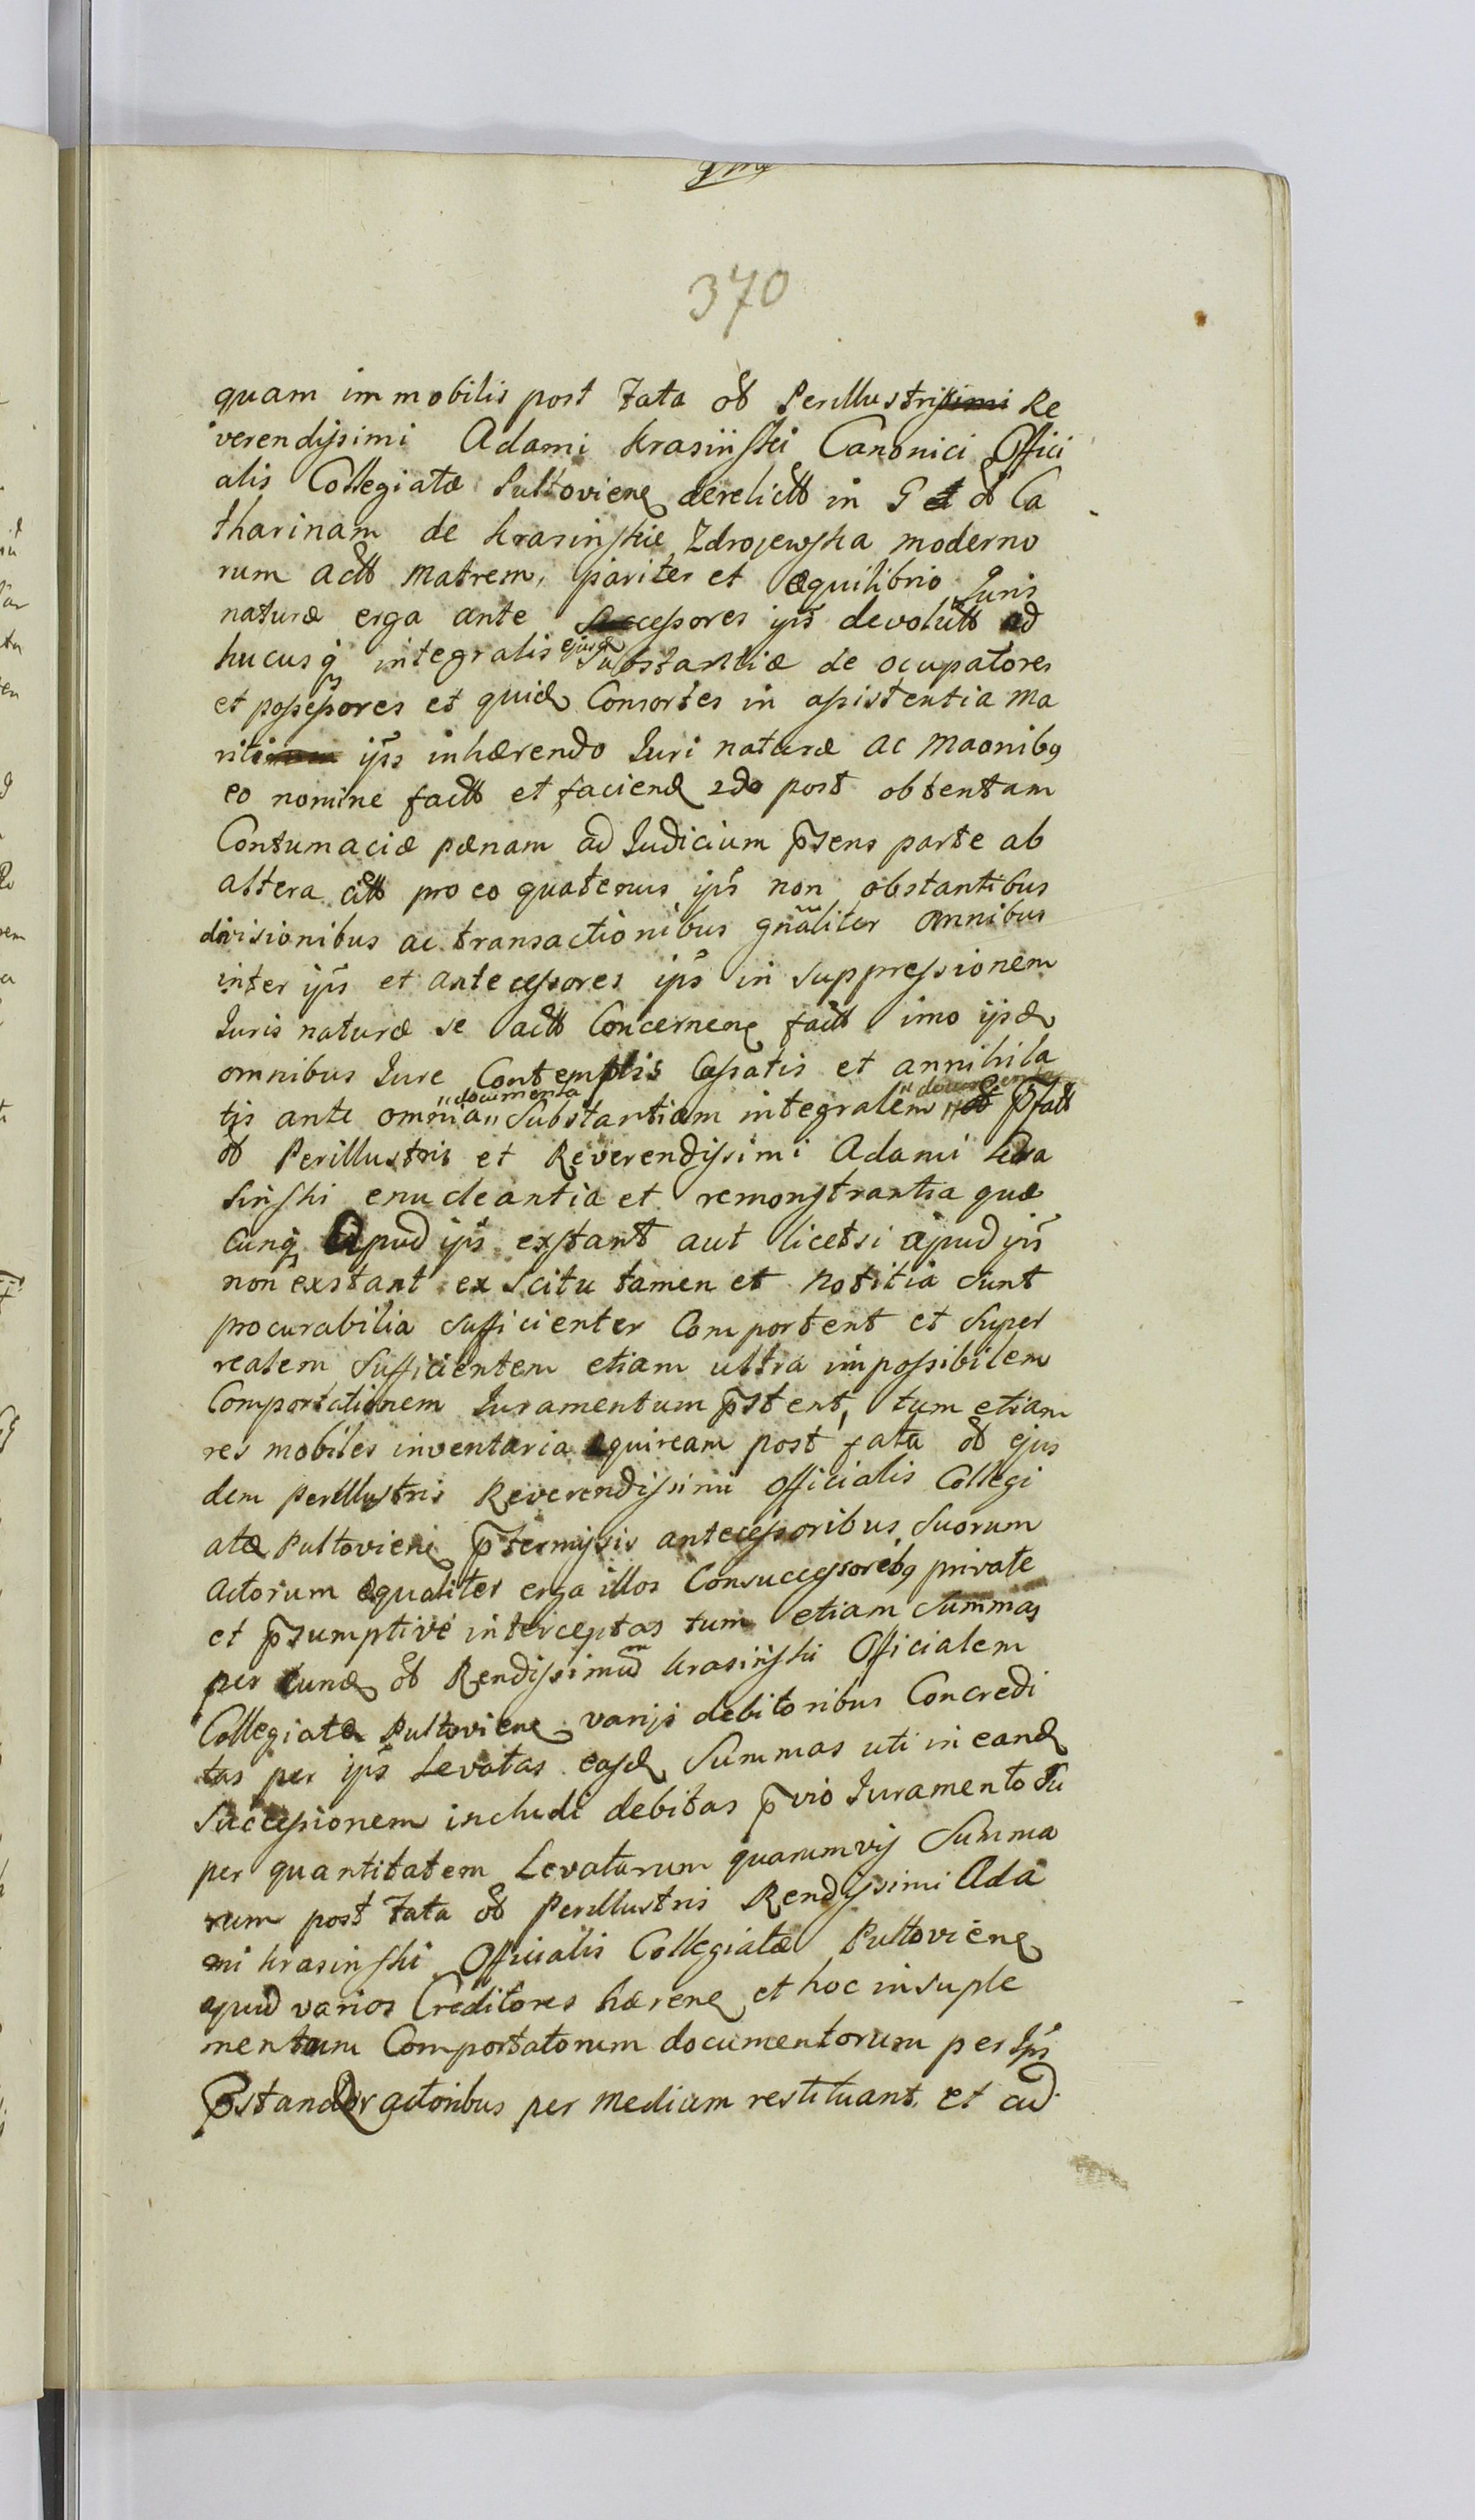 370
quam immobilis post Fata olt Perillustrissimi Re
verendissimi Adami Krasiński Canonici Offici
alis Collegiatæ Pultovieñ derelictt in G et olt Ca
tharinam de Krasinskie Zdrojewska moderno
rum actt matrem, pariter et æquilibrio Juris
naturæ erga ante Successores ipš devolutt ad
hucusq integralis ejusd Substantiæ de ocupatores
et possessores et quid Consortes in assistentia ma
riti ipš inhærendo Juri naturæ ac maonibq
eo nomine factt et faciend 2do post obtentam
Contumaciæ pænam ad Judicium p̄sens parte ab
altera citt pro eo quatenus ipš non obstantibus
divisionibus ac transactionibus gnaliter omnibus
inter ipš et antecessores ipš in suppressionem
Juris naturæ se actt Concerneñ factt imo ijsd
omnibus Jure Contemptis Cassatis et annihila
tis ante omnia "documenta" Substantiam integralem "documenta" olt p̄fatt
olt Perillustris et Reverendissimi Adami Kra
sinski enucleantia et remonstrantia quæ
cunq Apud ipš exstant aut licetsi apud ipš
non exstant ex scitu tamen et notitia sunt
procurabilia sufficienter Comportent et super
realem sufficientem etiam ultra impossibilem
Comportationem Juramentum p̄stent, tum etiam
res mobiles inventaria equiream post fata olt ejus
dem perillustris Reverendissimi officialis Collegi
atæ Pultovieñ p̄termissis antecessoribus suorum
actorum æqualiter erga illos Consuccessorebq private
et p̄sumptive interceptas tum etiam summas
per eund olt Rendissimum Krasiński Officialem
Collegiatæ Pultovieñ varijs debitoribus Concredi
tas per ipš Levatas easd Summas uti in eand
Successionem includi debitas p̄vio Juramento su
per quantitatem Levatarum quarumvis Summa
rum post Fata olt Perillustris Rendissimi Ada
mi Krasinski Officialis Collegiatæ Pultovieñ
apud varios Creditores hæreñ et hoc in suple
mentum Comportatorum documentorum per Ipš
p̄stand actoribus per mediam restituant et ad